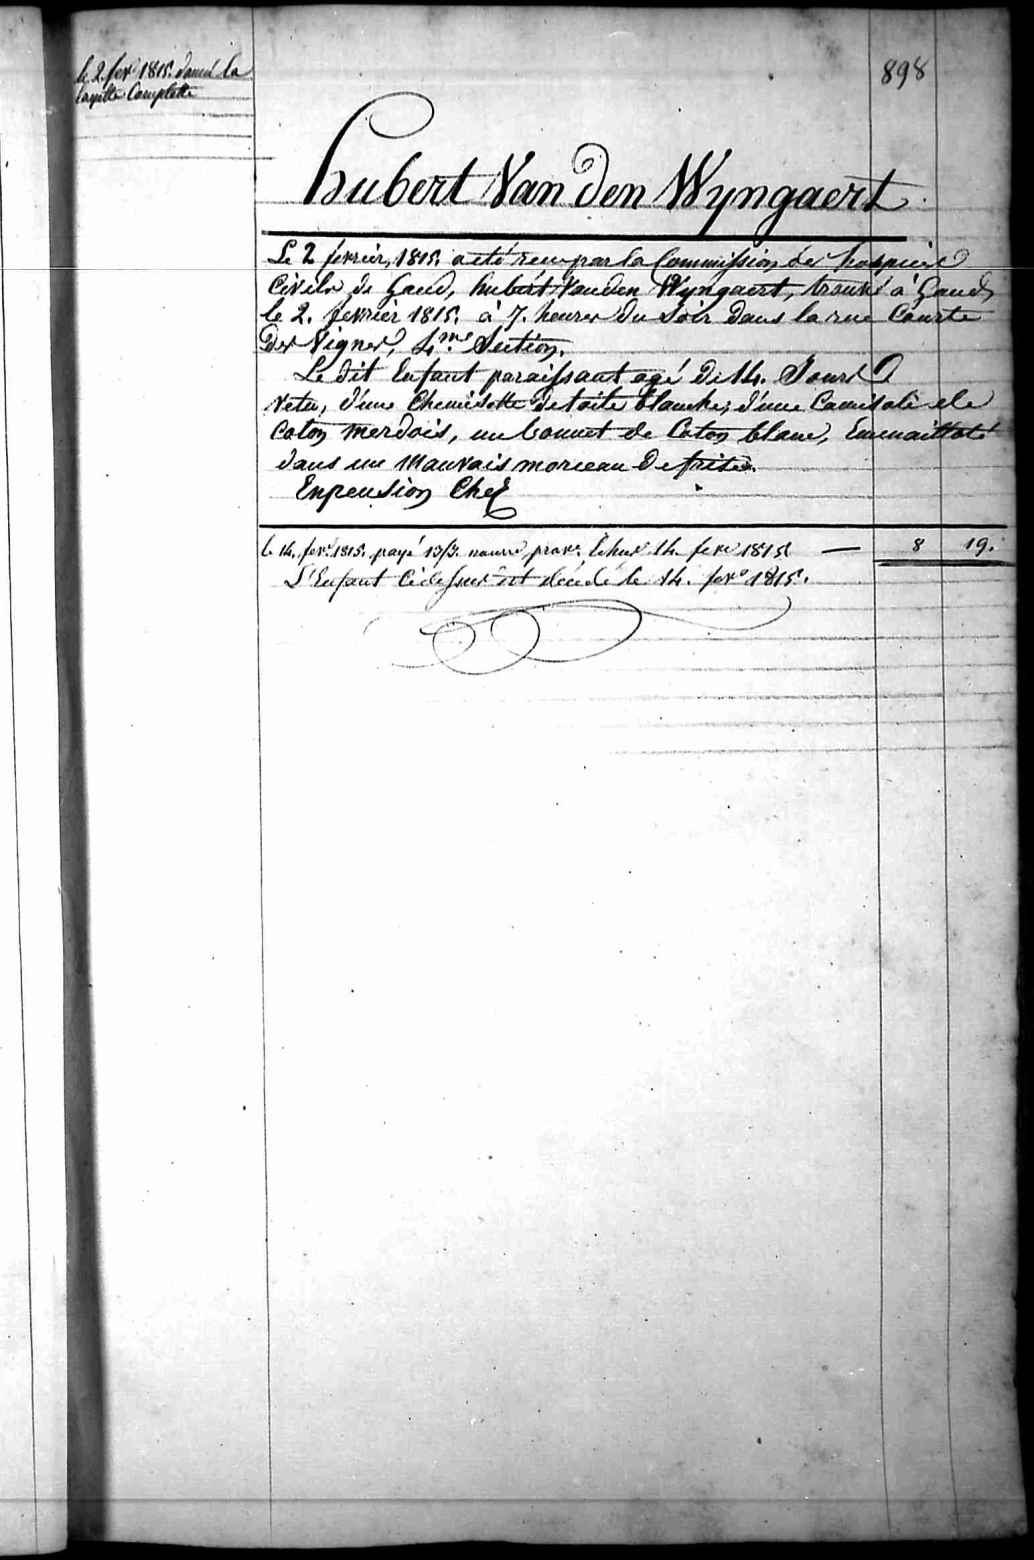 le 2 fevr 1815. donné la
layette Complette
898
hubert Van den Wyngaert
Le 2 fevrier, 1815. a eté recu par la Commission des hospices
Civils de Gand, hubert Vanden Wyngaert, trouvé à Gand,
le 2. fevrier 1815. à 7. heures du Soir dans la rue Courte
des Vignes, 4.me Section.
Le dit Enfant paraissant agé de 14. Jours
vetu, d'une Chemisette de toile blanche, d'une Camisole de
Coton merdois, un bonnet de Coton blanc, Emmaillotté
dans un Mauvais morceau de frise.
En pension Chez
le 14. fevr 1815. payé 13/3. nourre prove. Echus 14. fevr 1815 — 8 19.
L'Enfant Cidessus est décédé le 14. fevr 1815.